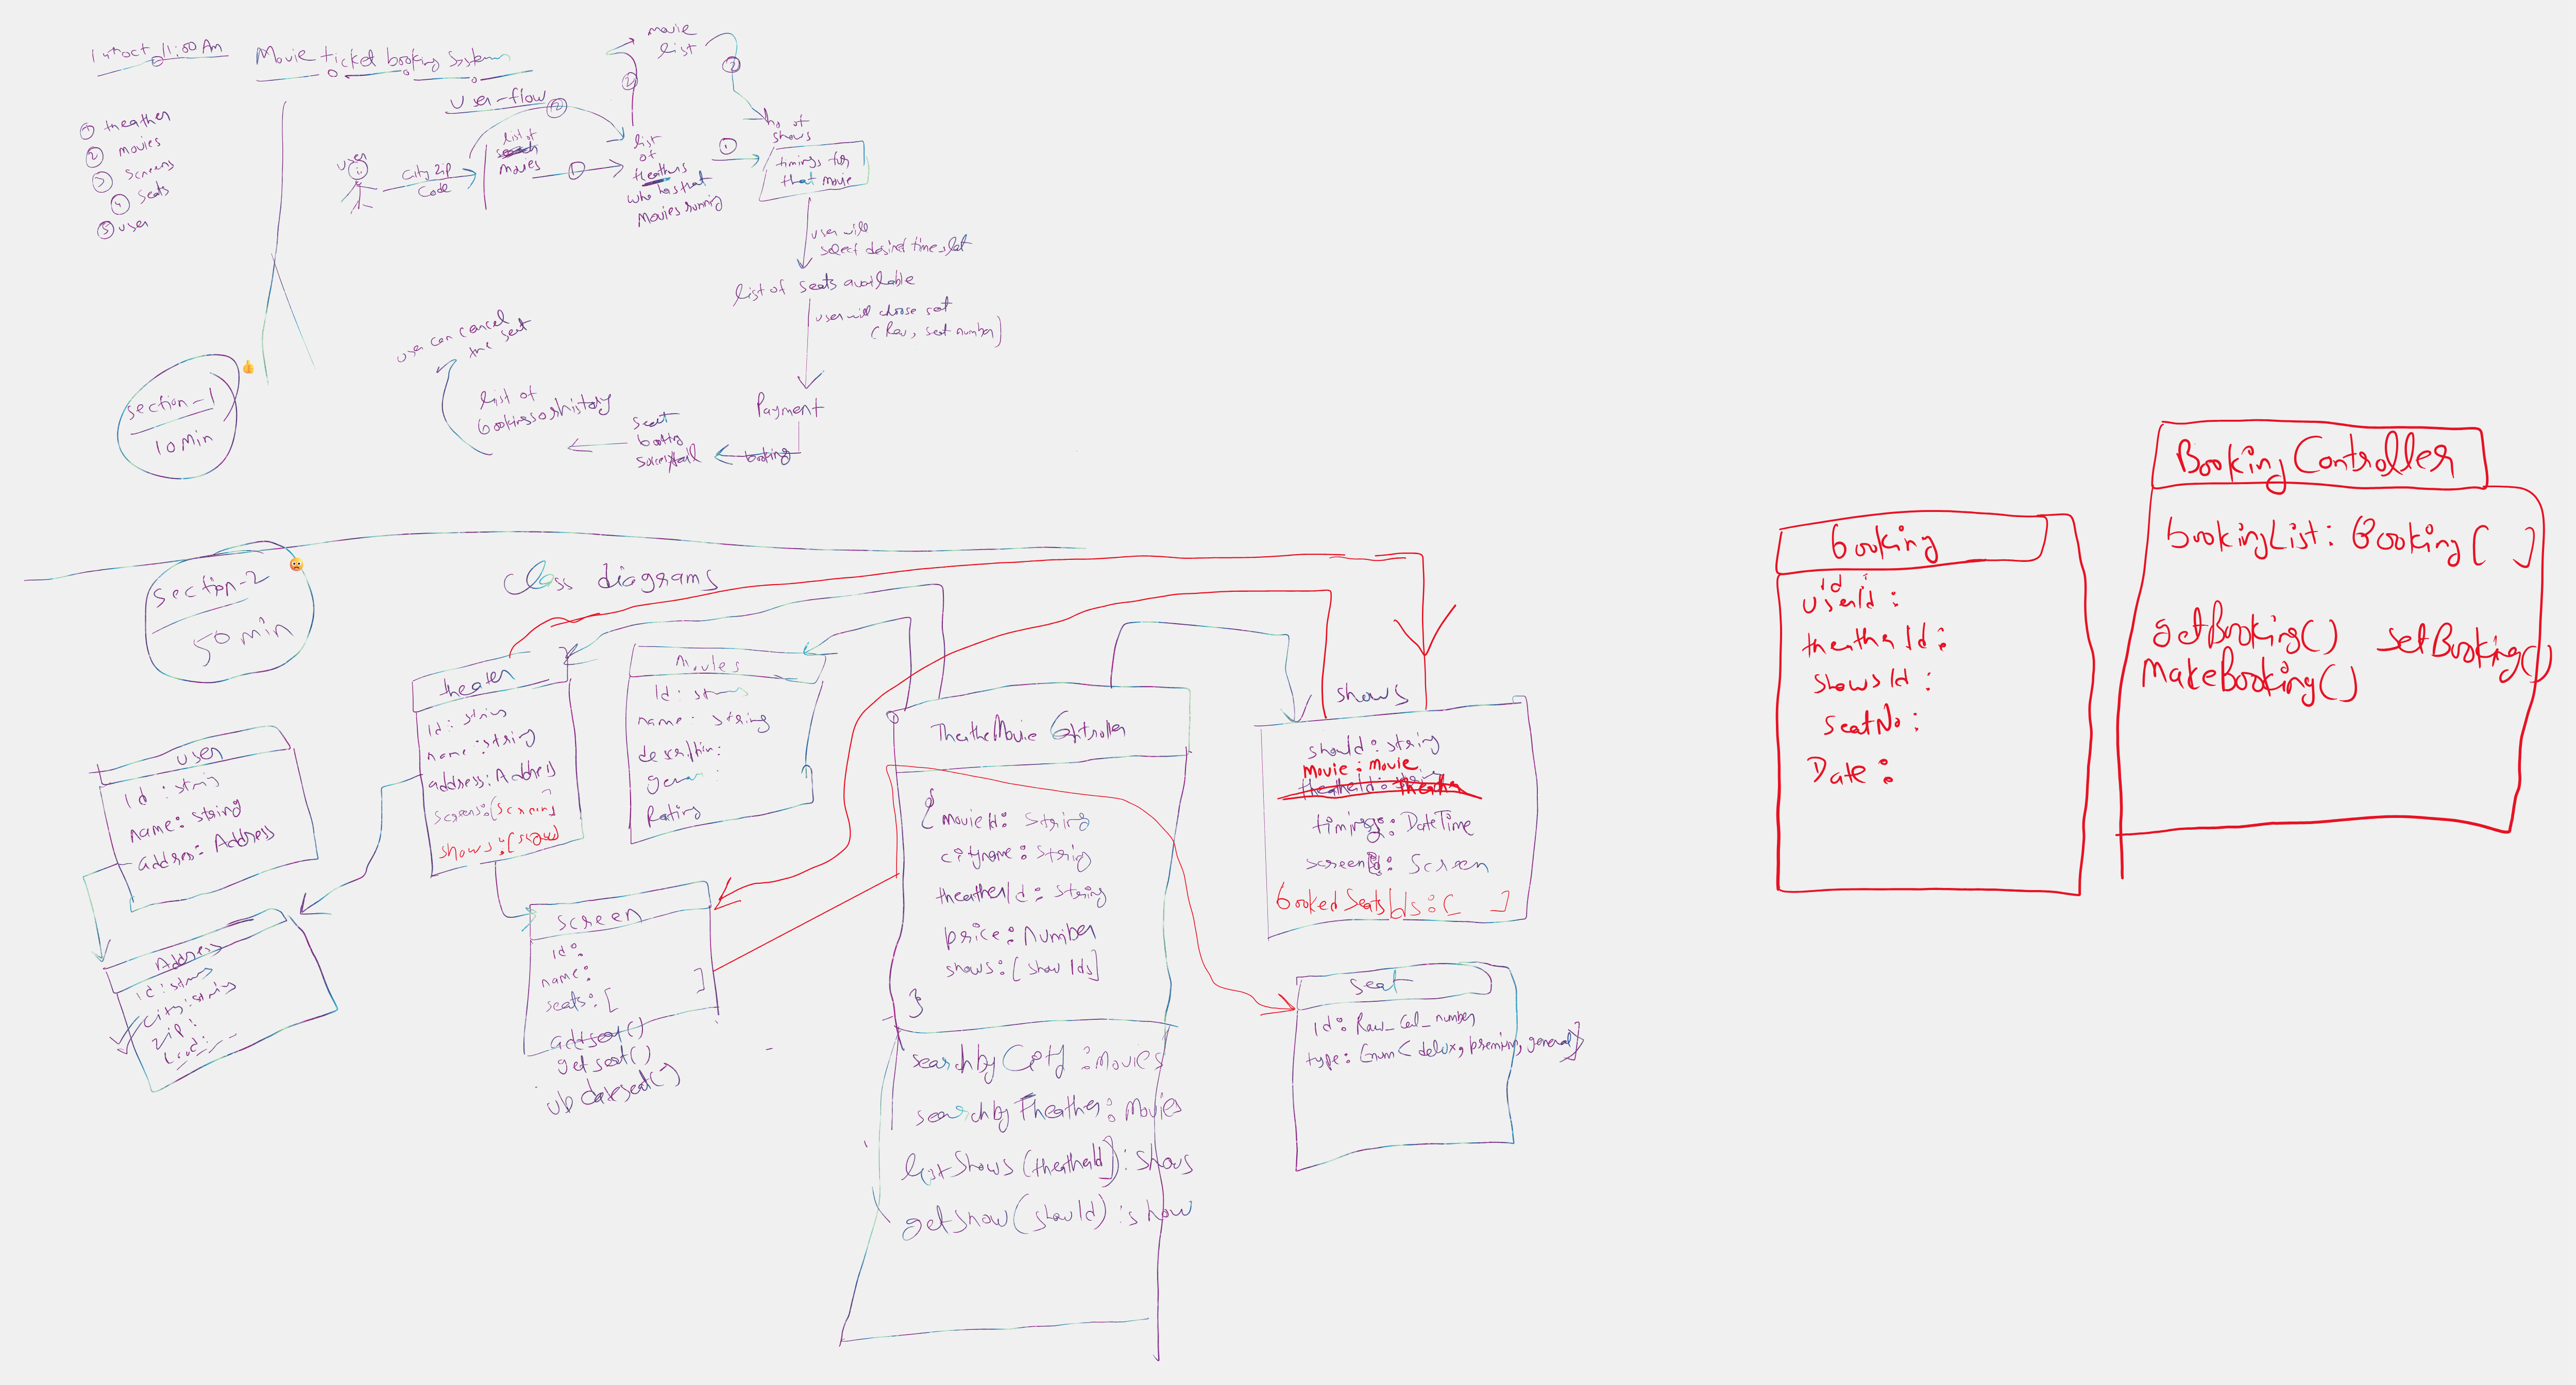 14th oct 11:00 Am
Movie ticket booking System
① theather
② movies
③ screens
④ seats
⑤ user
User-flow
user
City Zip
Code
list of
movies
①
②
list
of
theathers
who has that
Movies running
②
movie
list
②
①
no of
shows
timings for
that movie
user will
select desired time slot
list of seats available
user will choose seat
(Raw, seat number)
Payment
booking
seat
list of
user can cancel
the seat
section-1
10 Min
section-2
50 min
Class diagrams
user
id : string
name: string
address: Address
Address
id: string
city: string
zip:
code:
theater
id: string
name: string
address: Address
screens:[screens]
shows:[show]
Movies
id: string
name: string
Rating
screen
id:
name:
seats: [ ]
addseat()
getseat()
updateseat()
TheatheMovie Controller
{
movieId: string
cityname: string
theatherId: string
price: number
shows: [show Ids]
}
searchby City : movies
searchby Theather: movies
listShows (theatherId): shows
getshow (showId) : show
shows
showId: string
Movie : Movie
timings: DateTime
screen: Screen
bookedSeatsIds: [ ]
seat
id: Raw_Col_number
type: Enum< delux, premium, general}
booking
id :
userId :
theatherId:
showsId :
seatNo:
Date :
BookingController
bookingList: Booking[ ]
getBooking() setBooking()
makeBooking()